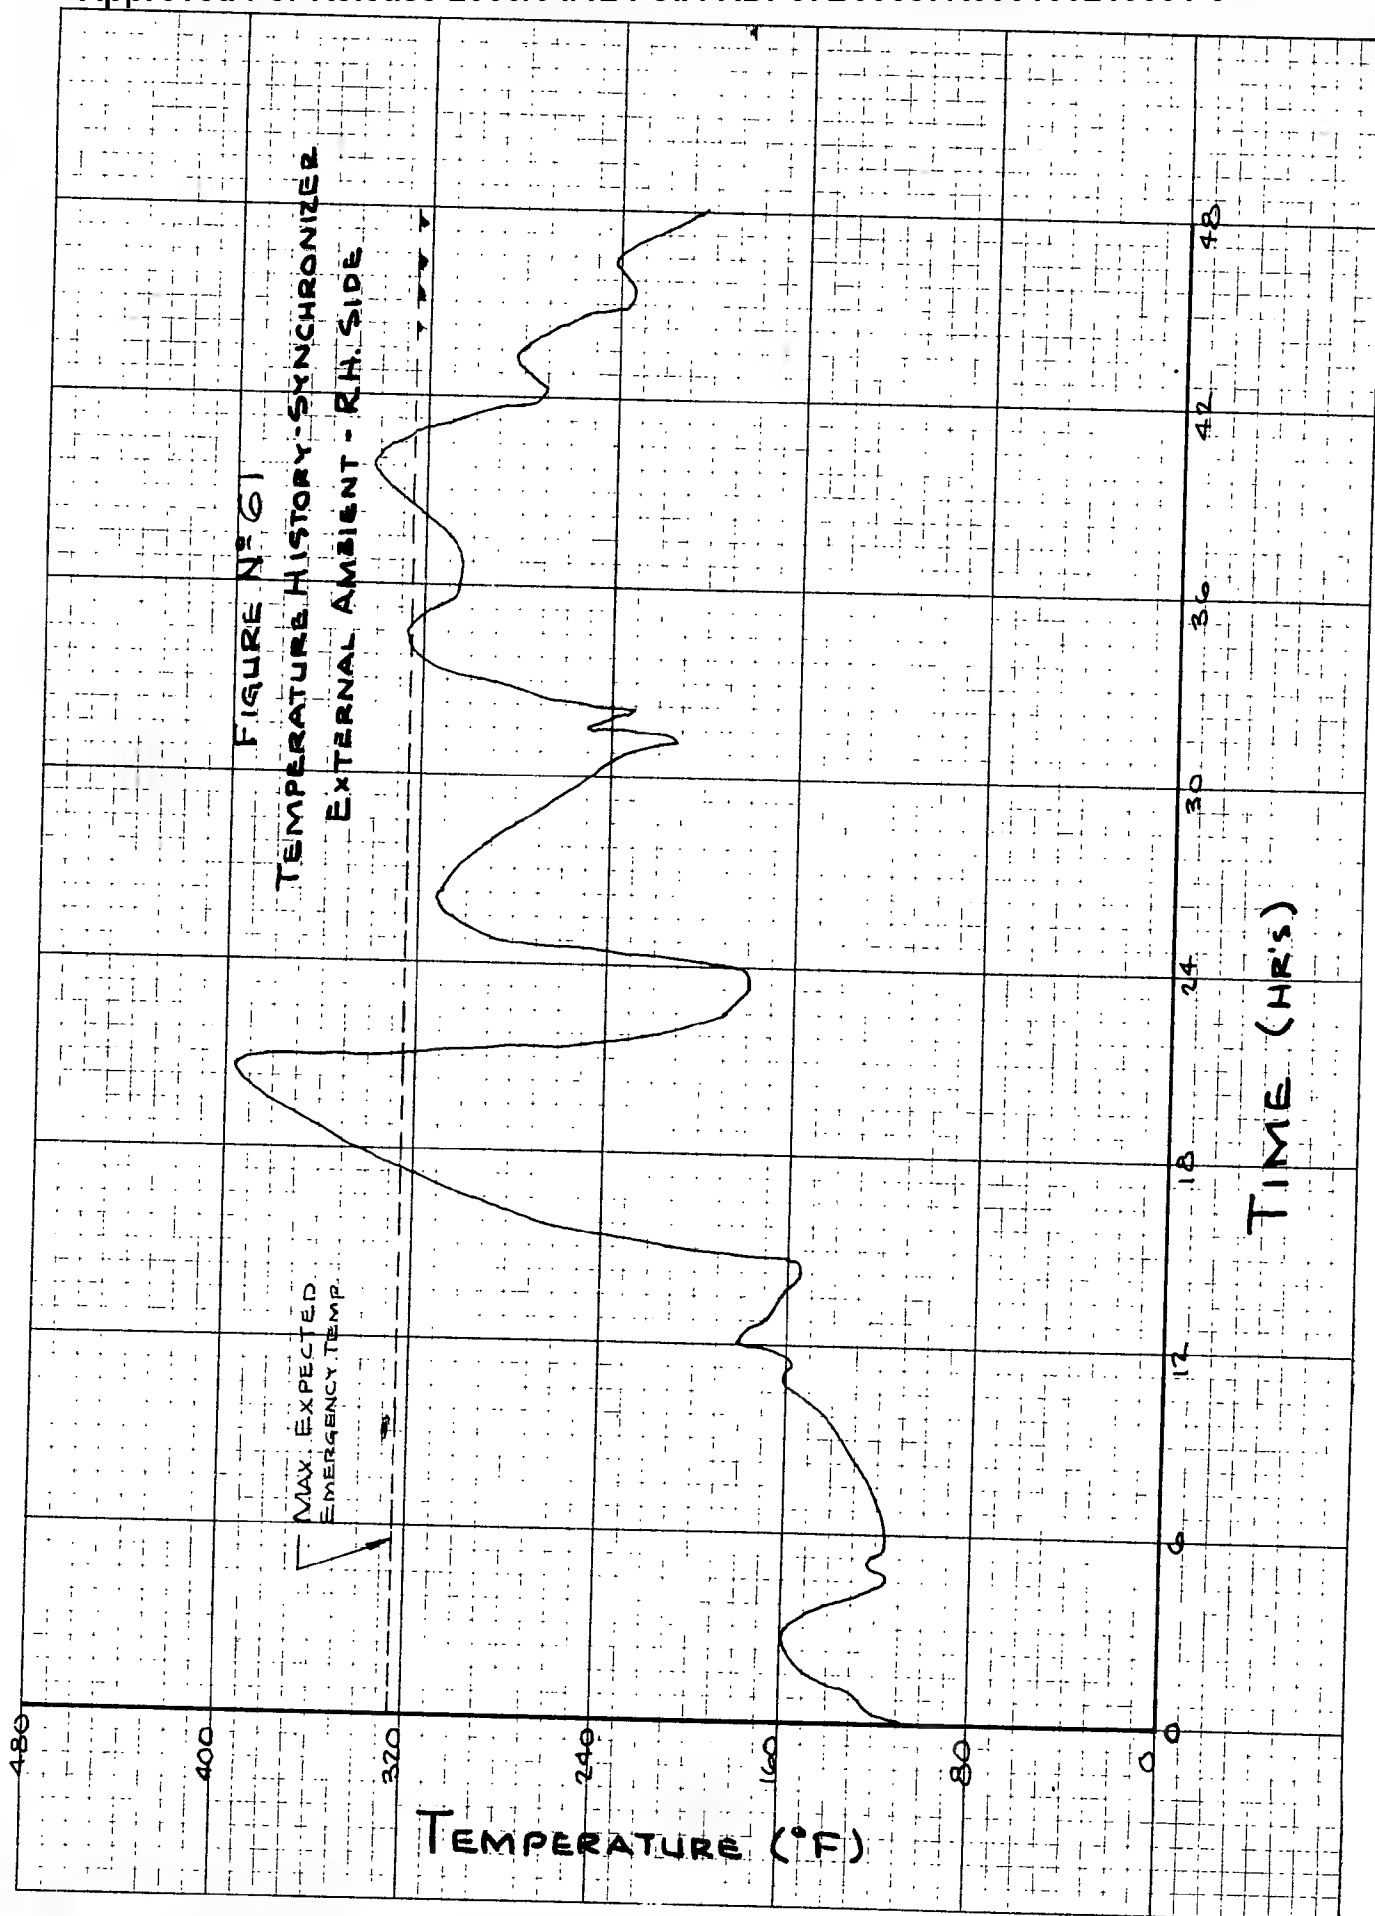 FIGURE Nº 61
TEMPERATURE HISTORY-SYNCHRONIZER
EXTERNAL AMBIENT - R.H. SIDE
MAX. EXPECTED
EMERGENCY TEMP.
480
400
320
240
160
80
0
TEMPERATURE (°F)
0
6
12
18
24
30
36
42
48
TIME (HR'S)